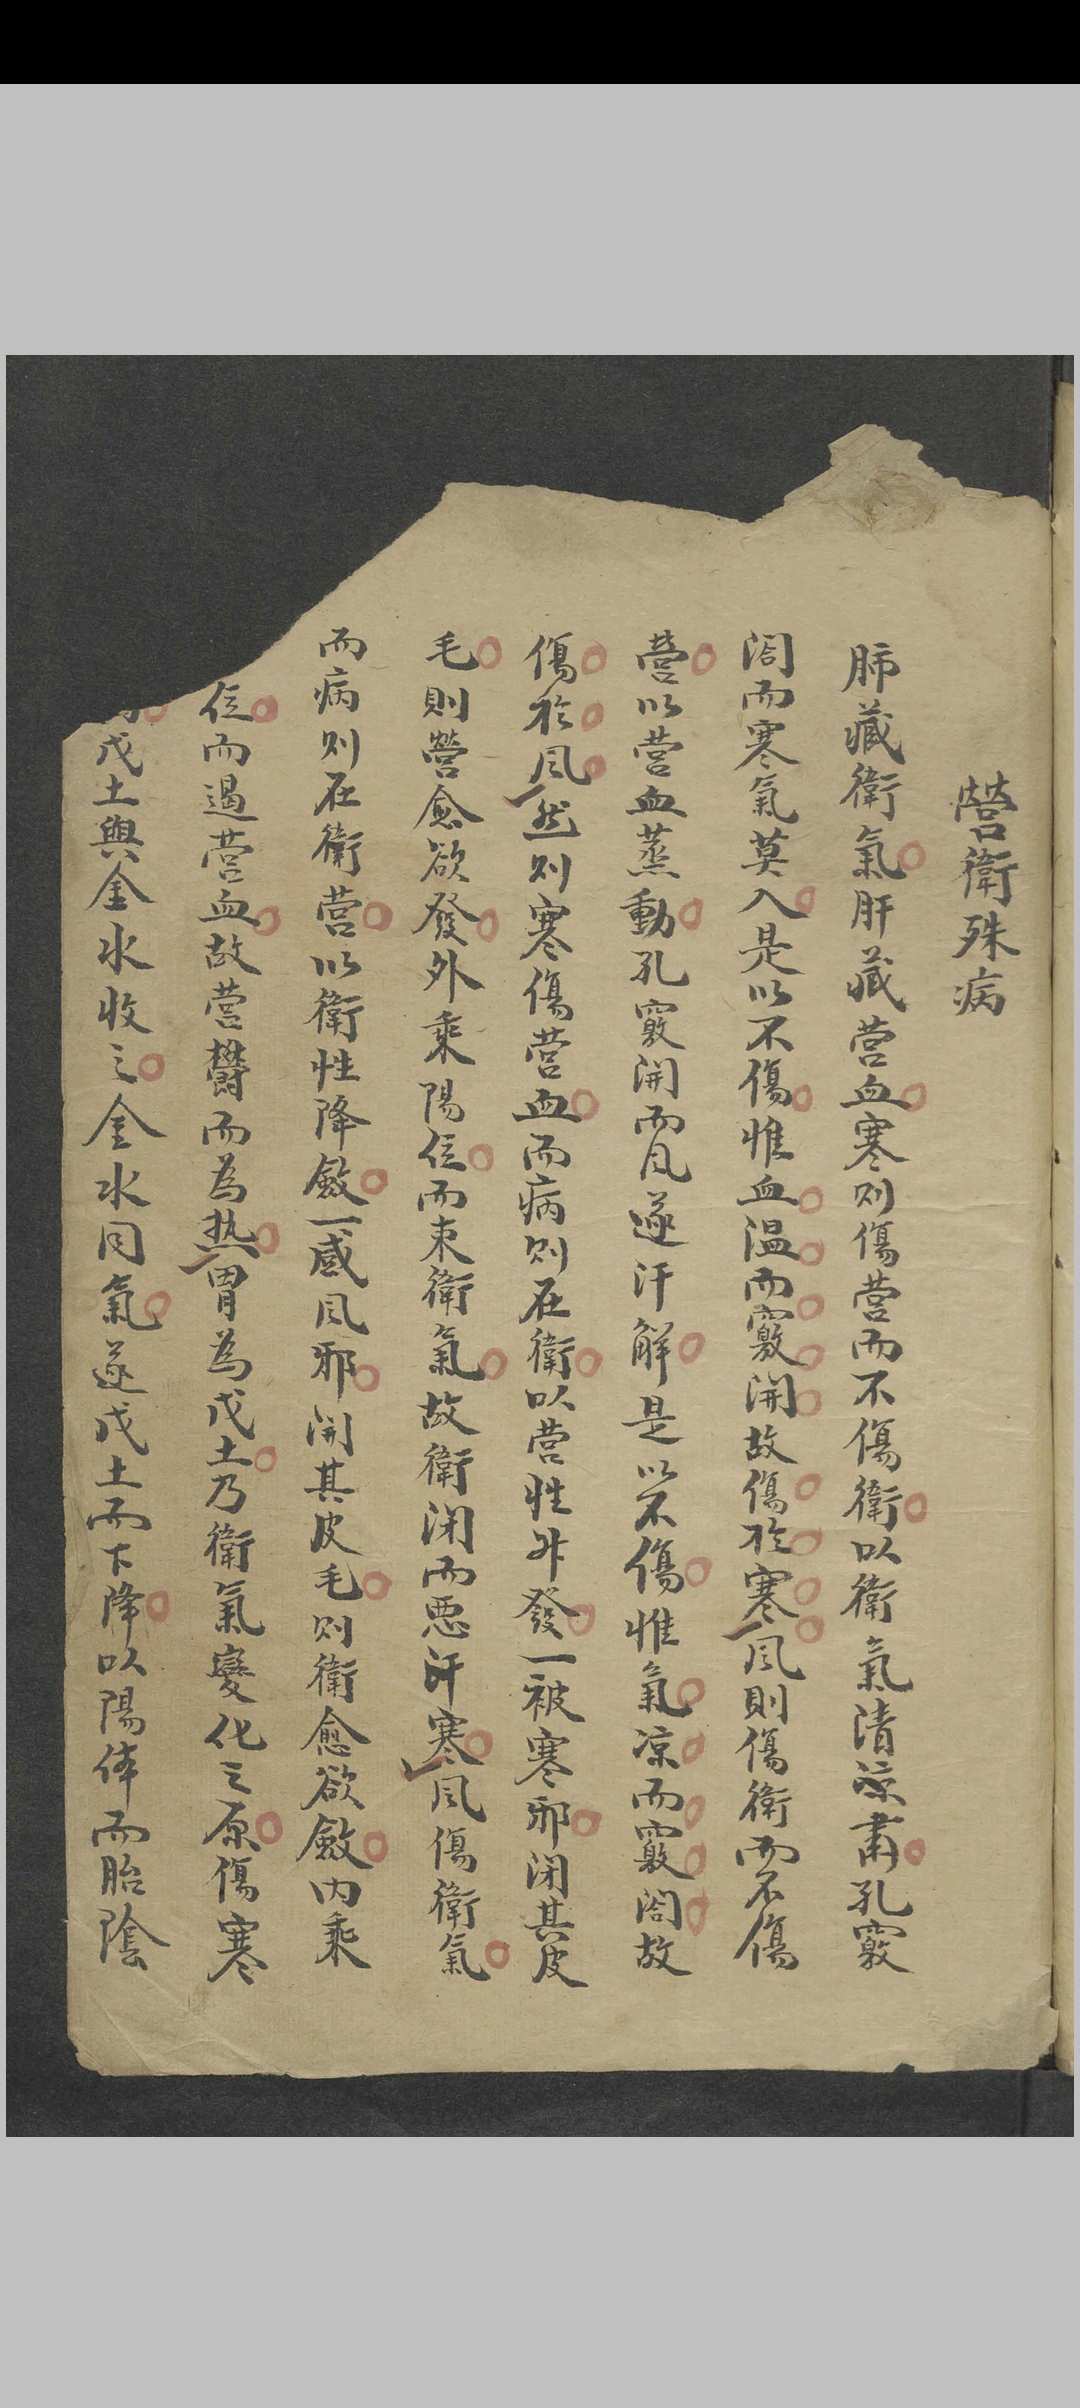 營衛殊病
肺藏衛氣肝藏营血寒则傷营而不傷衛以衛氣清凉肅孔竅
闔而寒氣莫入是以不傷惟血温而竅開故傷於寒風則傷衛而不傷
营以营血蒸動孔竅開而风遂汗解是以不傷惟氣凉而竅闔故
傷於风然则寒傷营血而病则在衛以营性外發一被寒邪闭其皮
毛則營愈欲發外乘陽位而束衛氣故衛闭而恶汗寒风傷衛氣
而病则在衛营以衛性降斂一感风邪開其皮毛则衛愈欲斂内乘
位而遏营血故营欝而為热胃為戊土乃衛氣變化之原傷寒
戊土與金水收之金水同氣遂戊土而下降以陽体而胎陰